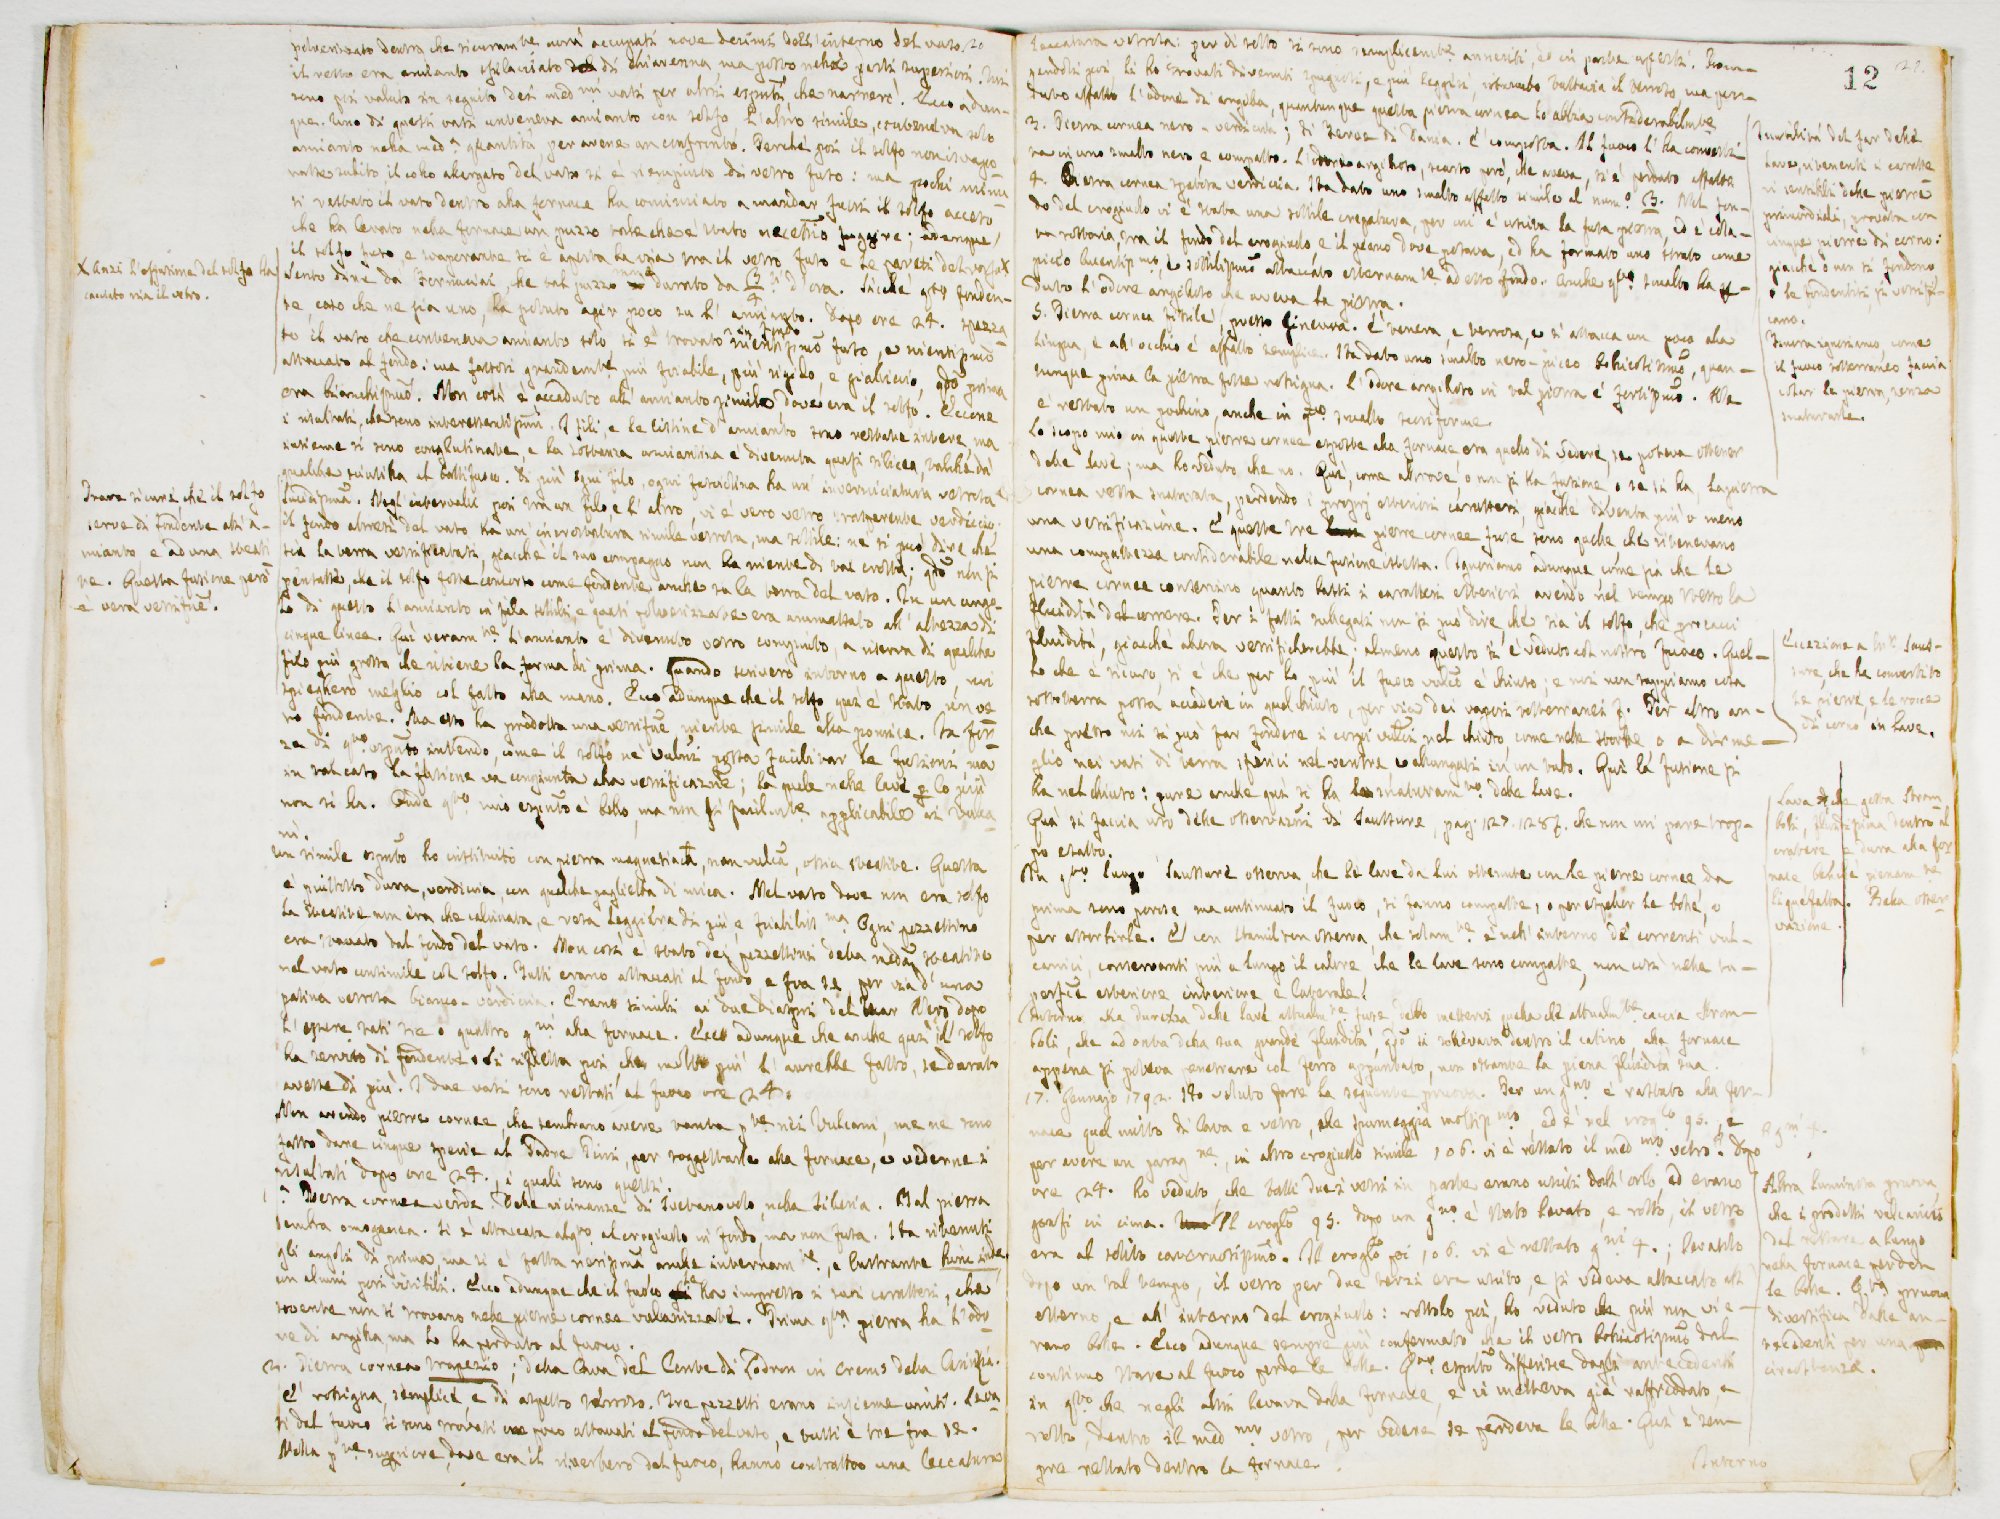 polverizzato dentro che sicuram.te avrà occupati nove decimi dell'interno del vaso. 20
il resto era amianto sfilacciato di Chiavenna, ma posto nelle parti superiori.
que. Uno di questi vasi conteneva amianto con zolfo, l'altro simile, conteneva solo
amianto nella med.a quantità, per avere un confronto. Perchè poi il zolfo non isvapo
rasse subito il collo allargato del vaso si è riempiuto di vetro fuso: ma pochi minu
ti restato il vaso dentro alla fornace ha cominciato a mandar fuori il zolfo acceso
che ha levato nella fornace un puzzo tale che è stato necess.rio fuggire; adunque
il zolfo fuso e svaporante si è aperta la via tra il vetro fuso e le pareti del vaso X
X Anzi l'effusione del zolfo ha
cacciato via il vetro.
Sento dire da Fornaciai, che tal puzzo durato da 3/4 d'ora. Sicchè fonden-
te, caso che ne sia uno, ha potuto agir poco su l'amianto. Dopo ore 24. spezza
to il vaso che conteneva amianto solo, si è trovato nientissimo fuso, e nientissimo
attaccato al fondo: ma fattosi grandem.te più friabile, più rigido, e gialliccio, prima
era bianchissimo. Non così è accaduto all'amianto simile, dove era il zolfo. Eccone
i risultati, che sono interessantissimi. I fili, e le listine d'amianto sono restate intere, ma
insieme si sono conglutinate, e la sostanza amiantina è divenuta quasi silicea, talchè dà
qualche scintilla al battifuoco. Di più ogni filo, ogni fascettina ha un'inverniciatura vetrosa
Trovo sicura che il zolfo
serve di fondente all'a-
mianto, e ad una steati
te. Questa fusione però
è vera vetrific.ne.
lucidissima. Negli intervalli poi tra un filo e l'altro, vi è vero vetro trasparente verdiccio.
il fondo altresì del vaso ha un'incrostatura simile vetrosa, ma sottile: nè si può dire che
sia la terra vetrificatasi, giacchè il suo compagno non ha niente di tal crosta; non si
pensasse, che il zolfo fosse concorso come fondente anche su la terra del vaso. In un ango-
lo di questo l'amianto in fila sottili, e quasi polverizzate era ammassato all'altezza di
cinque linee. Qui veram.te l'amianto è divenuto vetro compiuto, a riserva di qualche
filo più grosso che ritiene la forma di prima. Quando scriverò intorno a questo, mi
spiegherò meglio col fatto alla mano. Ecco adunque che il zolfo qui è stato un ve
ro fondente. Ma esso ha prodotto una vetrific.ne niente simile alla pomice. In for
za di q.to esp.to intendo, come il zolfo ne' vulcani possa facilitar le fusioni, ma
in tal caso la fusione va congiunta alla vetrificazione; la quale nelle lave p. lo più
non si ha. Onde q.to mio esp.to è bello, ma non è facilm.te applicabile ai Vulca
ni.
Un simile esp.to ho instituito con pietra magnesiaca, non vulc.a, ossia steatite. Questa
è piuttosto dura, verdiccia, con qualche paglietta di mica. Nel vaso dove non era zolfo
la steatite non era che calcinata, e resa leggiera di più, e friabiliss.ma Ogni pezzettino
era staccato dal fondo del vaso. Non così è stato dei pezzettini della med.ma steatite
nel vaso consimile col zolfo. Tutti erano attaccati al fondo e fra se, per via d'una
patina vetrosa bianco-verdiccia. Erano simili ai due diaspri del Mar Nero dopo
l'essere stati tre o quattro g.ni alla fornace. Ecco adunque che anche quì il zolfo
ha servito di fondente. Si rifletta poi, che molto più l'avrebbe fatto, se durato
avesse di più. I due vasi sono restati al fuoco ore 24.
Non avendo pietre cornee, che sembrano avere tanta p.te nei Vulcani, me ne sono
fatto dare cinque specie al Padre Pini, per soggettarle alla fornace, e vederne i
risultati dopo ore 24., i quali sono questi.
1.a Pietra cornea verde delle vicinanze di , nella Silesia. Tal pietra
sembra omogenea. Si è attaccata alq.to al crogiuolo in fondo, ma non fusa. Ha ritenuti
gli angoli di prima, ma si è fatta nerissima anche internam.te, e lustrante hinc inde,
in alcuni pori visibili. Ecco adunque che il fuoco le ha impresso i suoi caratteri, che
sovente non si trovano nelle pietre cornee vulcanizzate. Prima q.ta pietra ha l'odo-
re di argilla, ma lo ha perduto al fuoco.
2. Pietra cornea trapezio; della Cava del Conte di Lodron in
È rossigna, semplice, e di aspetto terroso. Tre pezzetti erano insieme uniti. Leva
ti dal fuoco si sono trovati un poco attaccati al fondo del vaso, e tutti e tre fra se.
Nella p.te superiore, dove era il riverbero del fuoco, hanno contratto una leccatura
leccatura vetrosa: per di sotto si sono semplicem.te anneriti, ed in parte aperti. Rom-
pendoli poi, li ho trovati divenuti spugnosi, e più leggieri, ritenendo tuttavia il terroso ma per-
duto affatto l'odore di argilla, quantunque questa pietra cornea lo abbia considerabilm.te
12
3. Pietra cornea nero-verdiccia; di di Dania. È composta. Il fuoco l'ha convertita
ta in uno smalto nero e compatto. L'odore argilloso, scarso però, che aveva, si è perduto affatto
4. Pietra cornea verdiccia. Ha dato uno smalto affatto simile al num.o 3. Nel fon-
do del crogiuolo vi è stata una sottile crepatura, per cui è uscita la fusa pietra, ed è resta-
ta sottovia, tra il fondo del crogiuolo e il piano dove posava, ed ha formato uno strato come
piccolo lucentiss.mo, e sottilissimo attaccato esternam.te ad esso fondo. Anche q.to smalto ha per-
duto l'odore argilloso che aveva la pietra.
5. Pietra cornea fissile, presso Ginevra. È tenera, e terrosa, e si attacca un poco alla
lingua, e all'occhio è affatto semplice. Ha dato uno smalto nero-piceo bollicosissimo, quan-
tunque prima la pietra fosse rossigna. L'odore argilloso in tal pietra è fortissimo. Ne
è restato un pochino, anche in q.to smalto scoriforme.
Lo scopo mio in queste pietre cornee esposte alla fornace era quello di vedere, se poteva ottener
delle lave; ma ho veduto che no. Quì, come altrove, o non si ha fusione, o se si ha, la pietra
cornea resta snaturata, perdendo i proprj esteriori caratteri, giacchè diventa più o meno
una vetrificazione. E queste tre pietre cornee fuse sono quelle, che ritenevano
una compattezza considerabile nella fusione istessa. Ignoriamo adunque, come sia che le
pietre cornee conservino quanto basta i caratteri esteriori avendo nel tempo stesso la
fluidità del correre. Per i fatti allegati non si può dire, che sia il zolfo, che procacci
fluidità, giacchè allora vetrificherebbe; almeno questo si è veduto col nostro fuoco. Quel-
lo che è sicuro, si è che per lo più il fuoco vulc.o è chiuso; e noi non sappiamo cosa
sotterra possa accadere in quel chiuso, per via dei vapori sotterranei &. Per altro an-
che presso noi si può far fondere i corpi vulc.ni nel chiuso, come nelle storte, o a dir me-
glio nei vasi di terra, sferici nel ventre, e allungati in un tubo. Quì la fusione si
ha nel chiuso: pure anche quì si ha lo snaturam.to delle lave.
Quà si faccia uso delle osservazioni di Saussure, pag. 127. 128 &. che non mi pare trop-
po esatto.
In q.to luogo Saussure osserva, che le lave da lui ottenute con le pietre cornee da
prima sono porose, ma continuato il fuoco, si fanno compatte, o per espeller le bolle, o
per assorbirle. E con Hamilton osserva, che solam.te è nell'interno de' correnti vul-
canici, conservanti più a lungo il calore, che le lave sono compatte, non così nella su-
perficie esteriore, inferiore, e laterale.
Intorno alla durezza delle lave attualm.te fuse debbo mettervi quella che attualm.te caccia Strom-
boli, che ad onta della sua grande fluidità, si sollevava dentro il catino, alla fornace
appena si poteva penetrare col ferro appuntato, non ostante la piena fluidità sua.
17. Gennajo 1792. Ho voluto fare la seguente pruova. Per un g.no è restato alla for-
nace quel misto di lava e vetro, che spumeggia moltiss.mo, ed è nel crog.lo 95., e
per avere un parag.ne, in altro crogiuolo simile 106. vi è restato il med.mo vetro. Dopo
ore 24. ho veduto, che tutti due i vetri in parte erano usciti dall'orlo, ed erano
gonfi in cima. Il crog.lo 95. dopo un g.no è stato levato, e rotto, il vetro
era al solito cavernosissimo. Il crog.lo poi 106. vi è restato g.ni 4.; levatolo
dopo un tal tempo, il vetro per due terzi era uscito, e si vedeva attaccato all'
esterno, e all'interno del crogiuolo: rottolo poi, ho veduto che più non vi e-
rano bolle. Ecco adunque sempre più confermato che il vetro bollicosissimo dal
continuo stare al fuoco perde le bolle. Q.to esp.to differisce dagli antecedenti
in q.to che negli altri levava dalla fornace, e vi metteva già raffreddato, e
rotto, dentro il med.mo vetro, per vedere se perdeva le bolle. Quì è sem-
pre restato dentro la fornace.
Intorno
lave, ritenenti i caratte
ri sensibili delle pietre
primordiali, provata con
cinque pietre di corno:
giacchè o non si fondono
o se fondonsi, si vetrifi-
cano.
Finora ignoriamo, come
il fuoco sotterraneo faccia
colar le pietre, senza
snaturarle.
Eccezione a Mr. Saus-
sure, che ha convertito
le pietre e le rocce
di corno in lave.
Lava che getta Strom
boli, fluidissima dentro al
cratere, e dura alla for
nace benchè pienam.te
liquefatta. Bella osser
vazione.
g.ni 4.
Altra luminosa pruova,
che i prodotti vulcanici
dal restare a lungo
nella fornace perdon
le bolle. Q.ta pruova
diversifica dalle an-
tecedenti per una
circostanza.